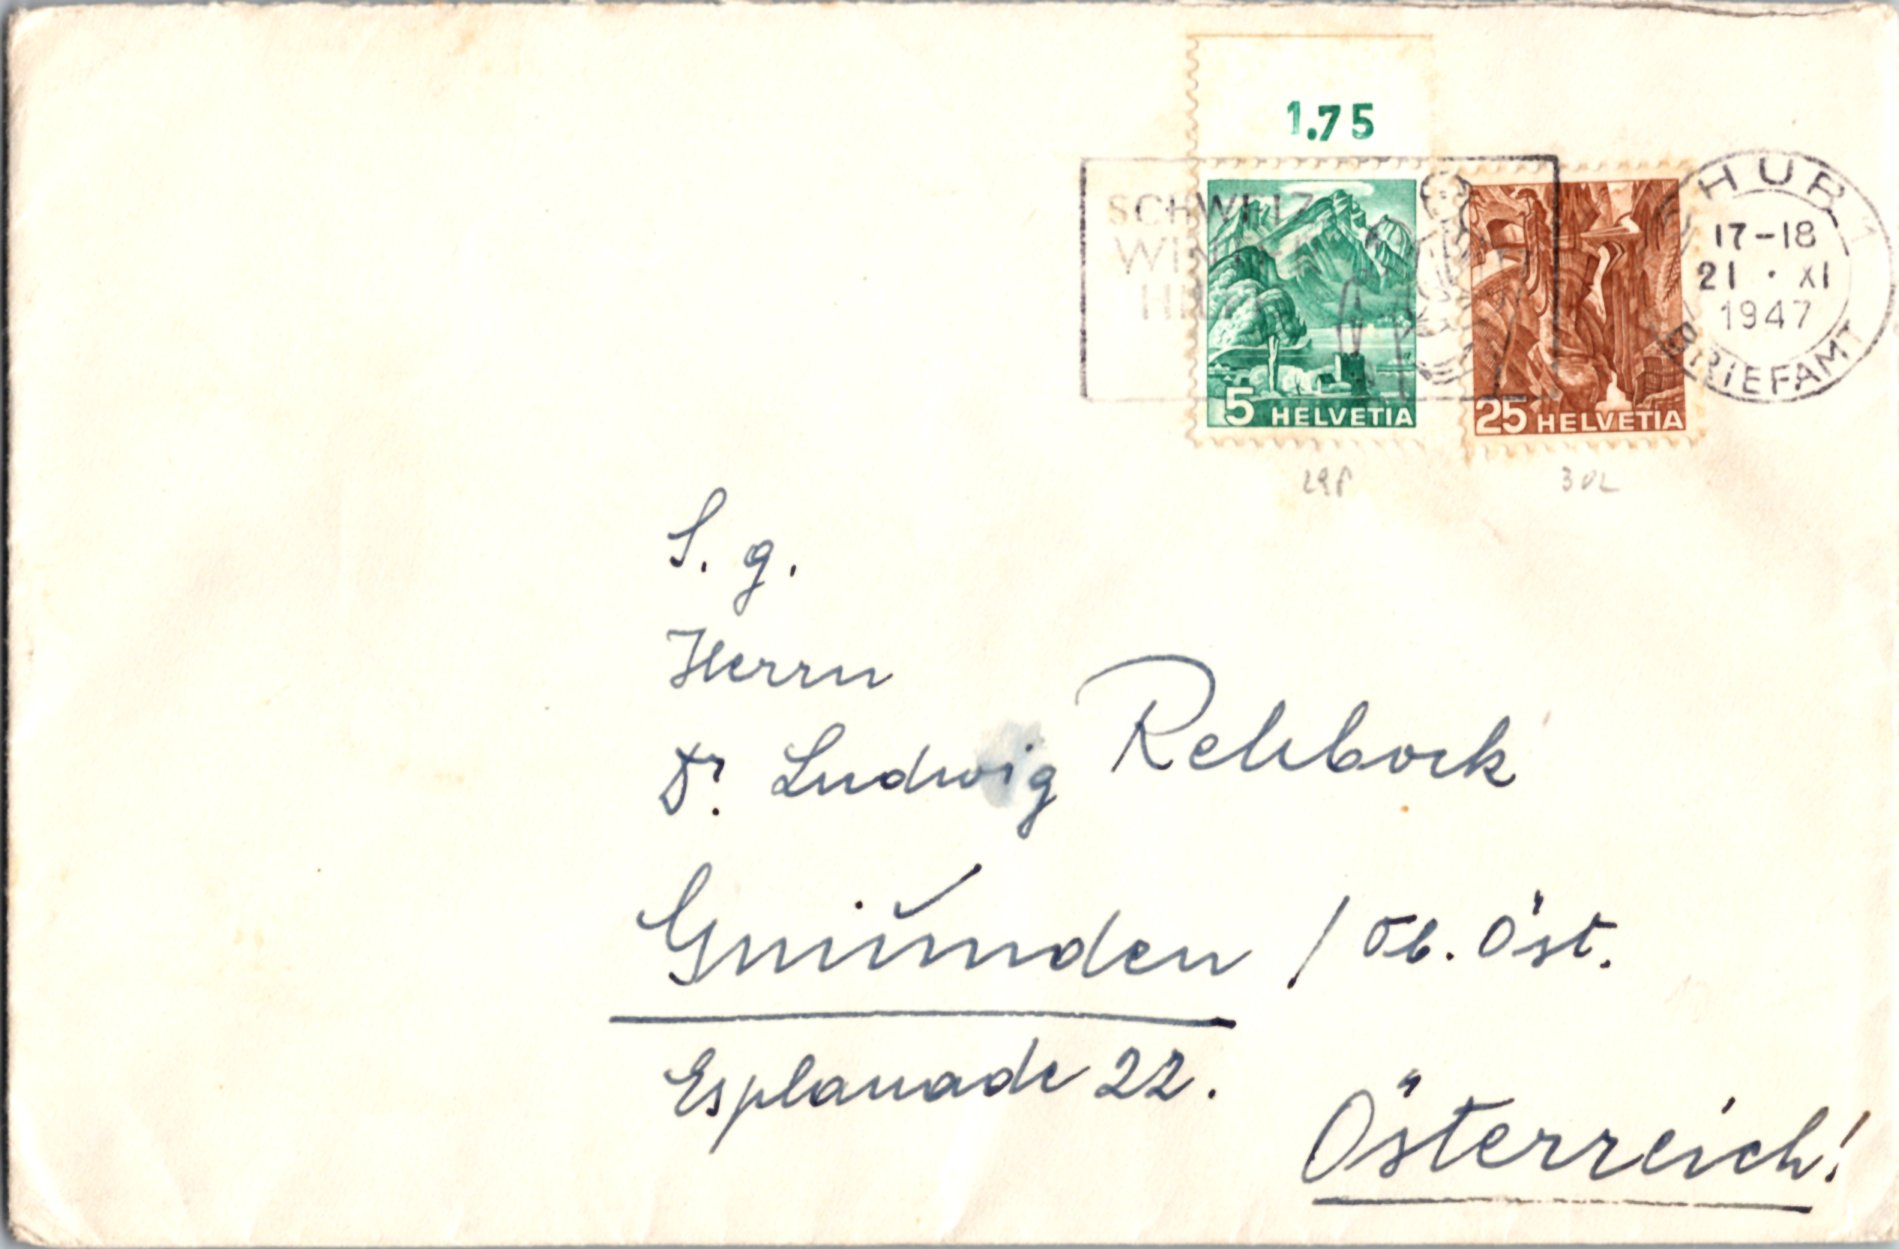 1.75
SCHWEIZ.
WINTER
HILFE
5 HELVETIA
25 HELVETIA
CHUR 1
17-18
21 · XI
1947
BRIEFAMT
S. g.
Herrn
Dr. Ludwig Rehbock
Gmůnden / Ob. Öst.
Esplanade 22.
Österreich!